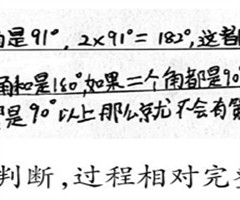 是91°, 2×91°=182°,这
角和是180°,如果二个角都是90
是90°以上那么就不会有第
判断,过程相对完